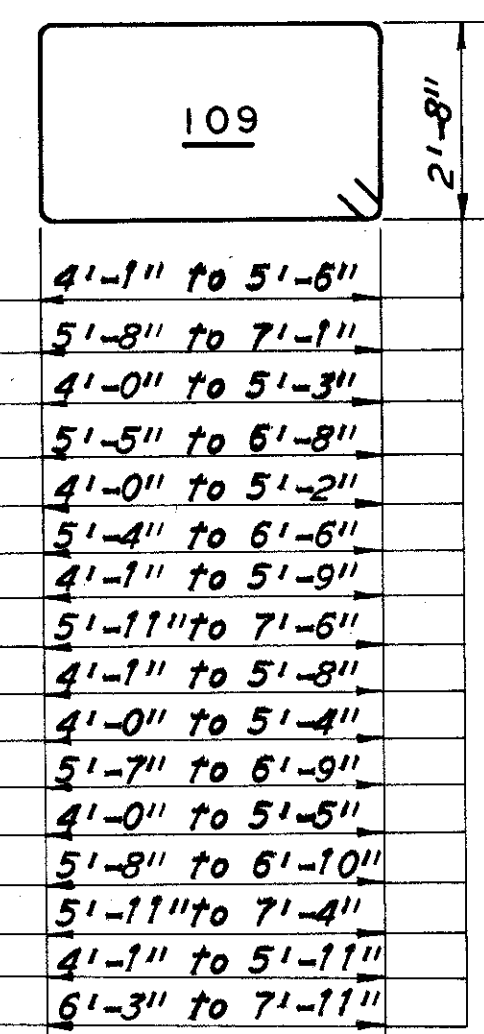 109
2'-8"
4'-1" to 5'-6"
5'-8" to 7'-1"
4'-0" to 5'-3"
5'-5" to 6'-8"
4'-0" to 5'-2"
5'-4" to 6'-6"
4'-1" to 5'-9"
5'-11" to 7'-6"
4'-1" to 5'-8"
4'-0" to 5'-4"
5'-7" to 6'-9"
4'-0" to 5'-5"
5'-8" to 6'-10"
5'-11" to 7'-4"
4'-1" to 5'-11"
6'-3" to 7'-11"